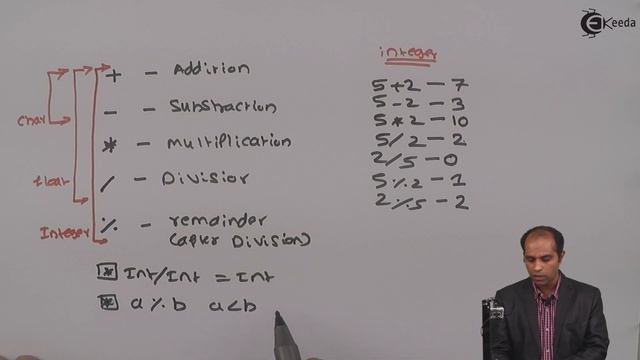 Ekeeda
+ - Addition
- - Substraction
* - multiplication
/ - Division
% - remainder
(after Division)
char
float
Integer
* Int/Int = Int
* a % b a<b
integer
5+2 - 7
5-2 - 3
5*2 - 10
5/2 - 2
2/5 - 0
5%2 - 1
2%5 - 2